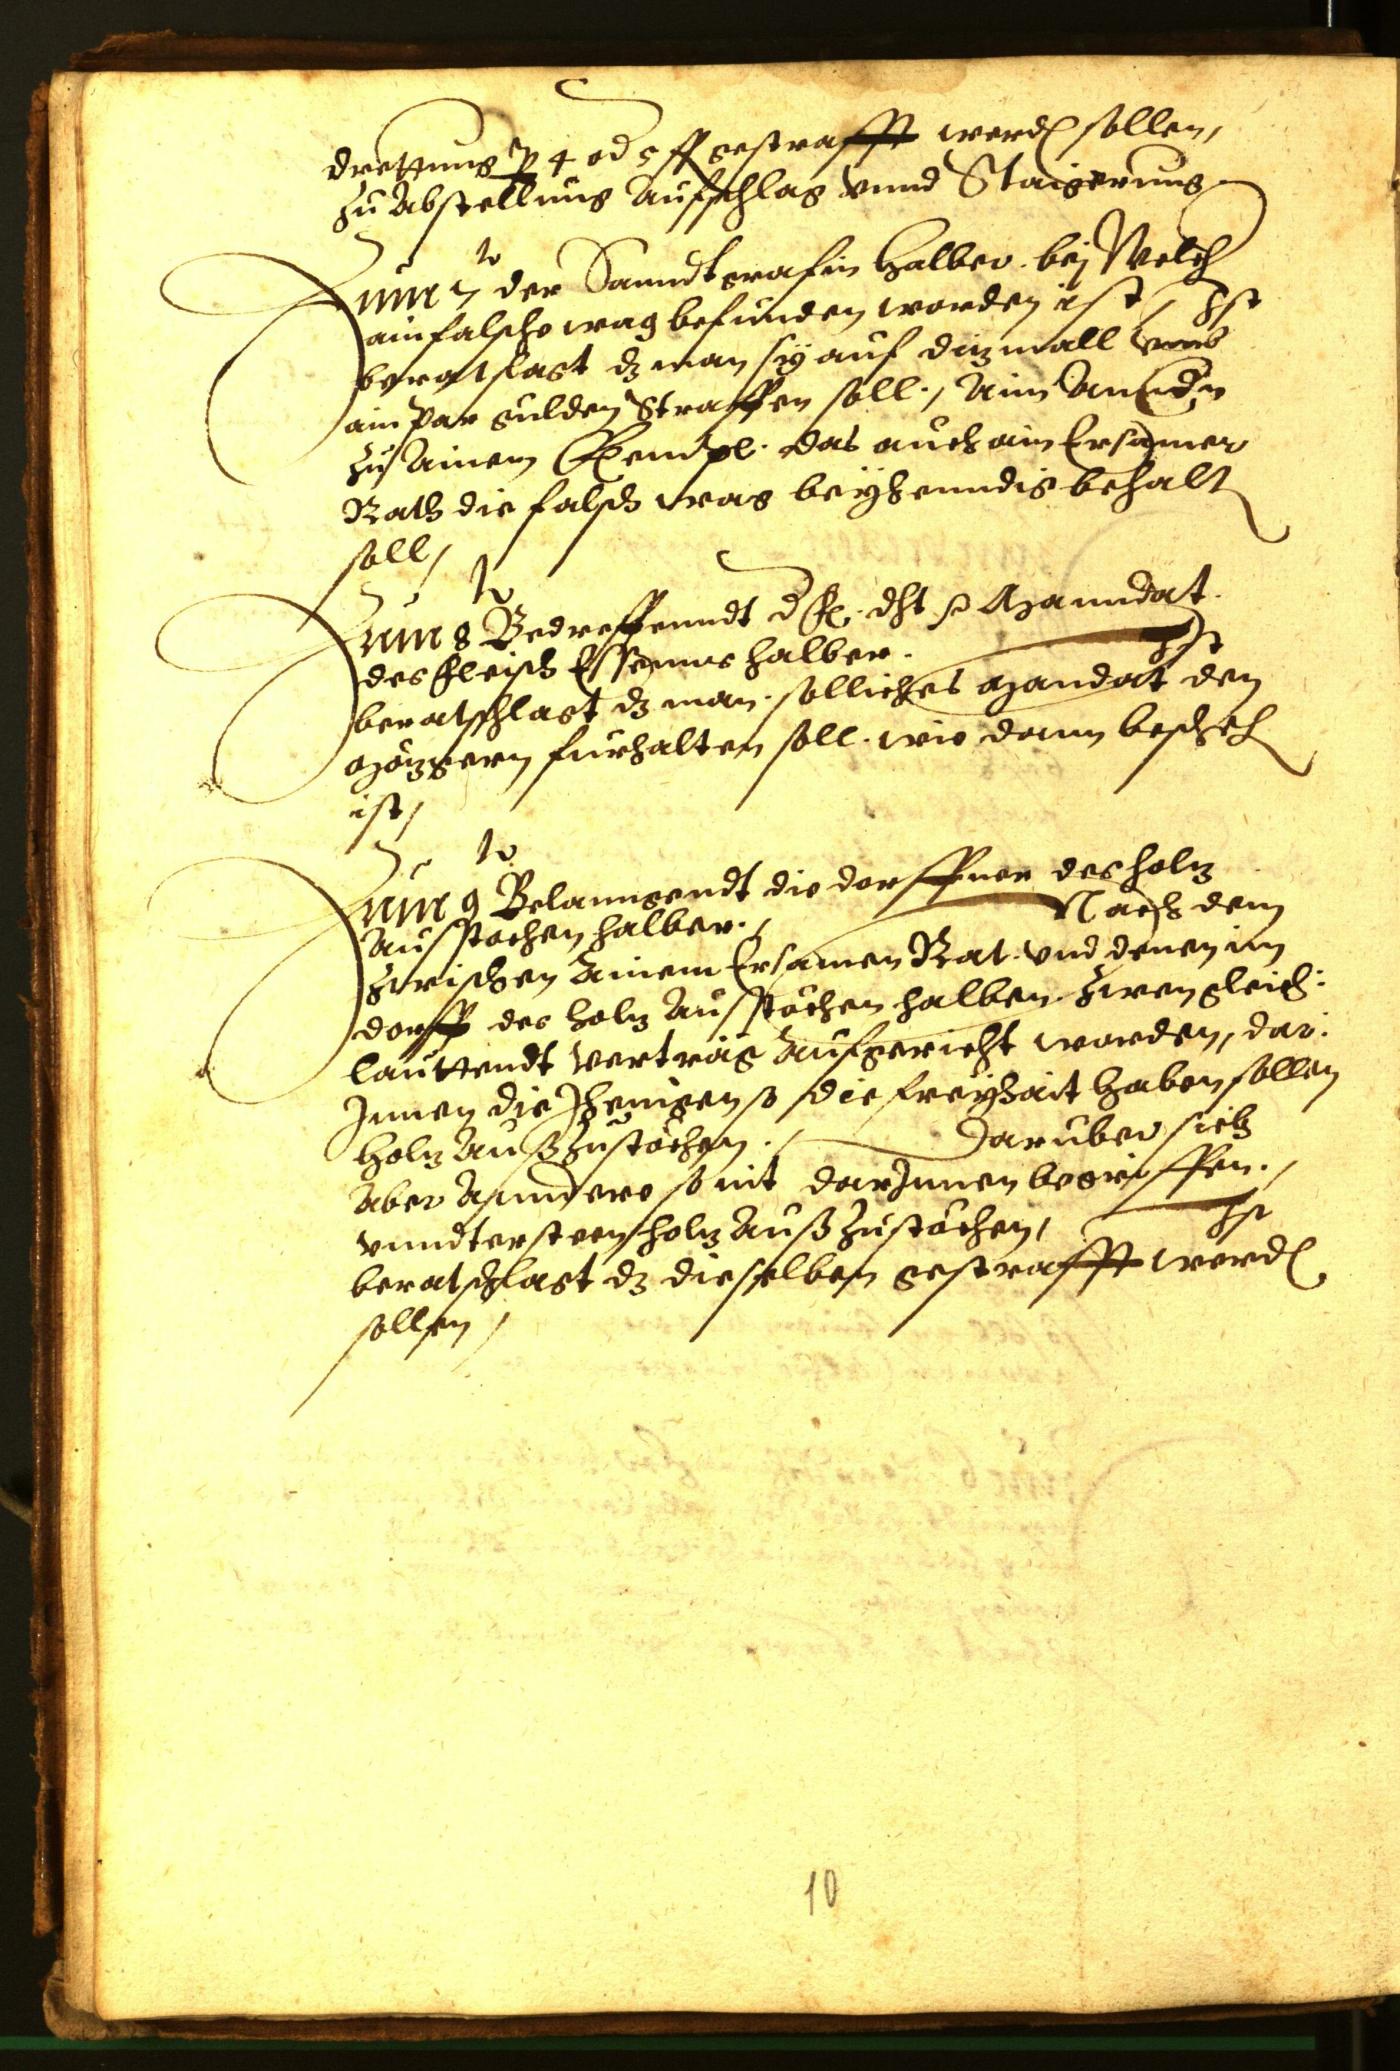 drettung p 4 od 5 fl gestrafft werdn sollen,
zu Abstellung Aufschlag vnnd Staigerung
Zum 7 to der Sanndtgrafin halber. bej Welcher
ain falsche wag befunden worden ist, Ist
beratslagt dz man sÿ auf diz mall vmb
ain par gulden Straffen soll, Aim Anndn
zu ainem Exempl. das auch ain Ersamer
Rath die falsch wag beÿhenndig behalt
soll,
Zum 8 to Bedreffenndt der Fr. dht Manndat
des fleisch Essenns halber. Ist
beratschlagt dz man solliches Mandat den
Mözgern furhalten soll. wie dann beschehen
ist,
Zum 9 to Belanngendt die dorffner des holz
Ausstochen halber, Nach dem
zwischen Ainem Ersamen Rat vnd denen im
dorff des holz Ausstöchen halben zwen gleich:
lauttendt verträg Aufgericht worden, dar:
Innen die Jhenigen so die freÿhait haben sollen
holz Auß zustöchen. Daruber sich
Aber Anndere so nit darJnnen begriffen,
vnndtersteen holz Auß zustöchen, Ist
beratschlagt dz dieselben gestrafft werdn
sollen,
10